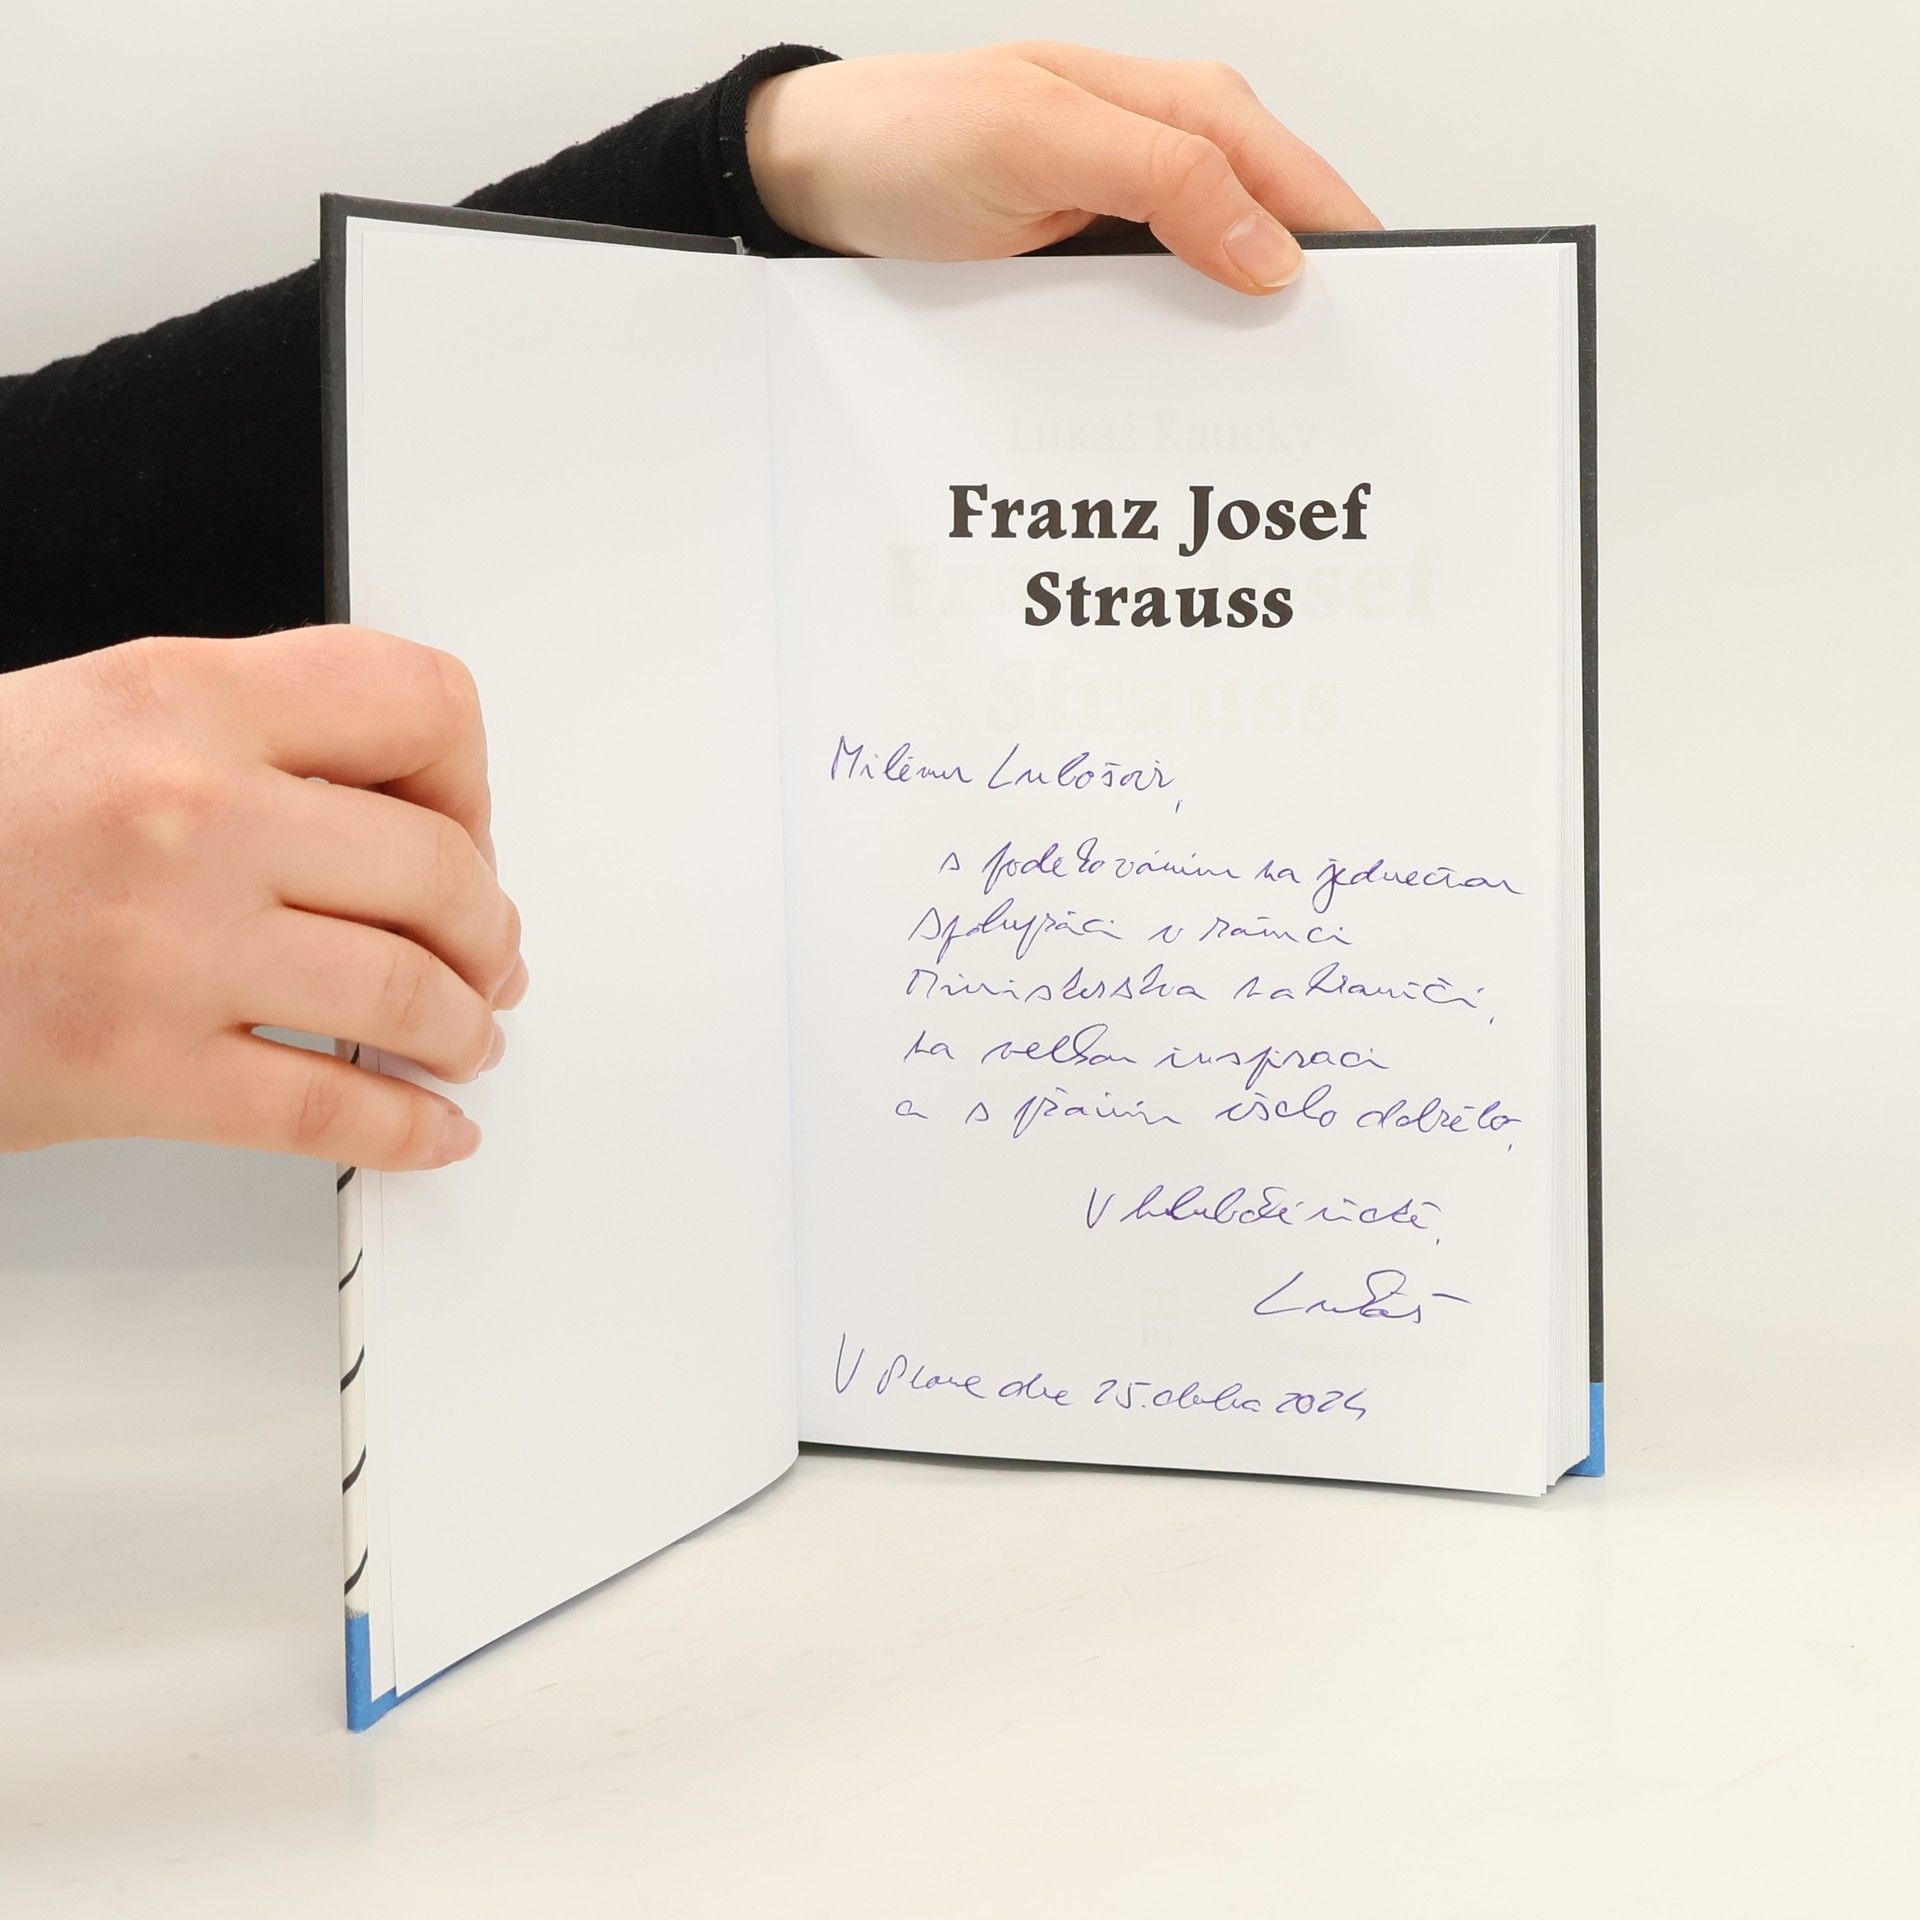 Lukáš Kaucký
Franz Josef
Strauss
Franz Josef
Strauss
Milému Lubošovi,
s poděkováním za jedinečnou
spolupráci v rámci
Ministerstva zahraničí,
za velkou inspiraci
a s přáním všeho dobrého,
V hluboké úctě,
Lukáš
V Praze dne 25. dubna 2024